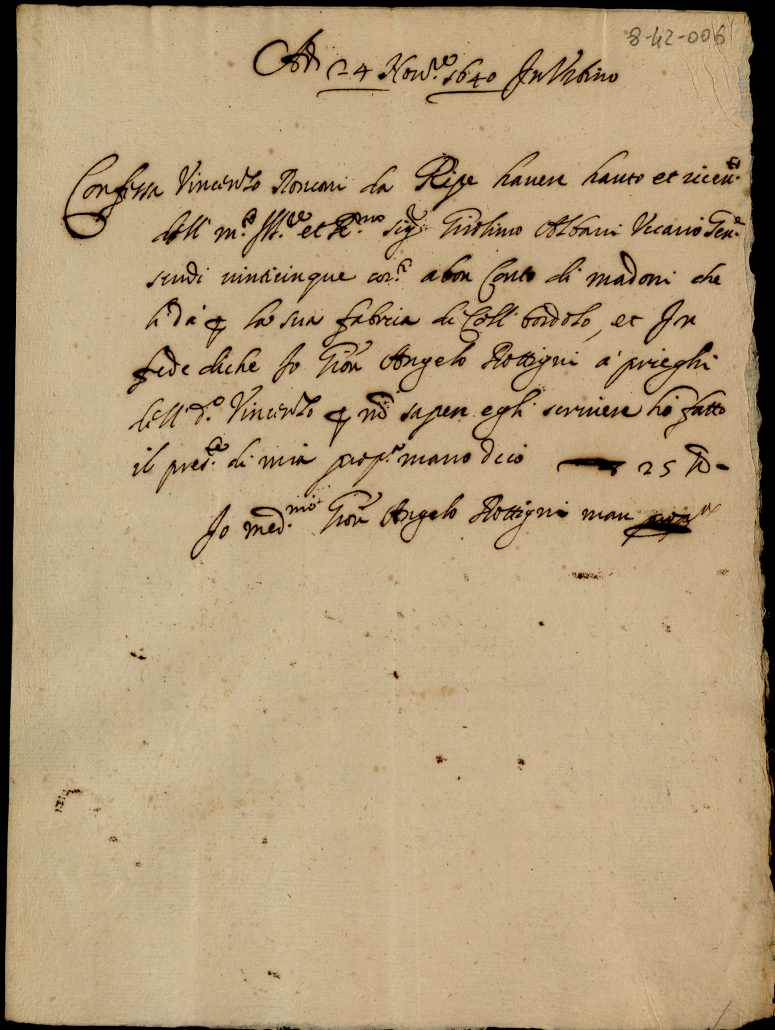 8-42-006
Adì 24 Nov.re 1640 In Urbino
Confessa Vincenzo Ronconi da Ripe havere hauto et riceu.to
dall' m.to Ill.re et R.mo sig.r Girolimo Albani Vicario Gen.e
scudi vinticinque cor.ti a bon conto di madoni che
li dà p la sua fabrica di Coll bordolo, et In
fede di che Io Giōn Angelo Rottigni à prieghi
dell' d.o Vincenzo p nō sapere egli scrivere hò fatto
il pres.te di mia prop.a mano dico 25 D-
Io med.mo Giōn Angelo Rottigni man prop.a